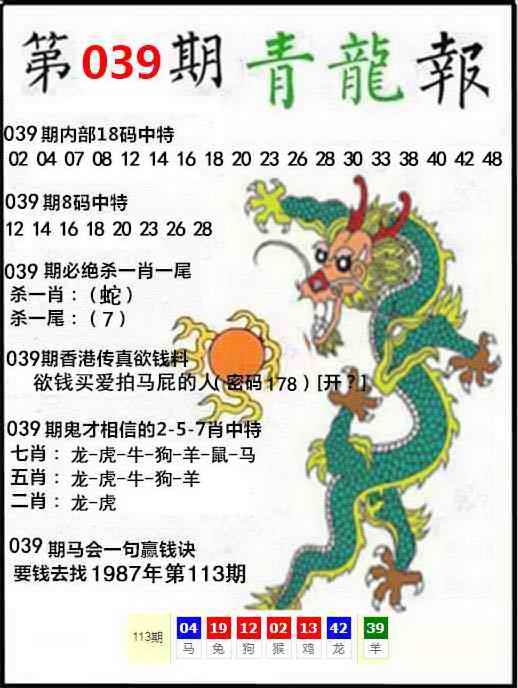 第039期青龍報
039期内部18码中特
02 04 07 08 12 14 16 18 20 23 26 28 30 33 38 40 42 48
039期8码中特
12 14 16 18 20 23 26 28
039 期必绝杀一肖一尾
杀一肖：（蛇）
杀一尾：（7）
039期香港传真欲钱料
欲钱买爱拍马屁的人(密码178）[开？]
039期鬼才相信的2-5-7肖中特
七肖：龙-虎-牛-狗-羊-鼠-马
五肖：龙-虎-牛-狗-羊
二肖：龙-虎
039期马会一句赢钱诀
要钱去找1987年第113期
113期 04 19 12 02 13 42 39
马 兔 狗 猴 鸡 龙 羊